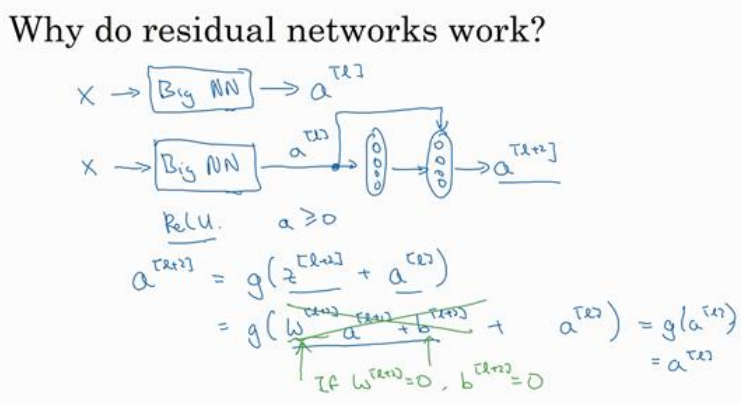 Why do residual networks work?
X → Big NN → a^[l]
X → Big NN a^[l] → → a^[l+2]
ReLU. a ≥ 0
a^[l+2] = g(z^[l+2] + a^[l])
= g(W^[l+2] a^[l+1] + b^[l+2] + a^[l]) = g(a^[l])
= a^[l]
If W^[l+2] = 0, b^[l+2] = 0